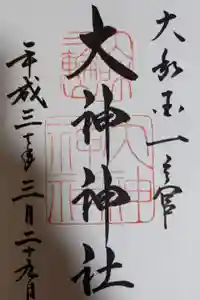 大和国一之宮
大神神社
平成三十年三月二十九日